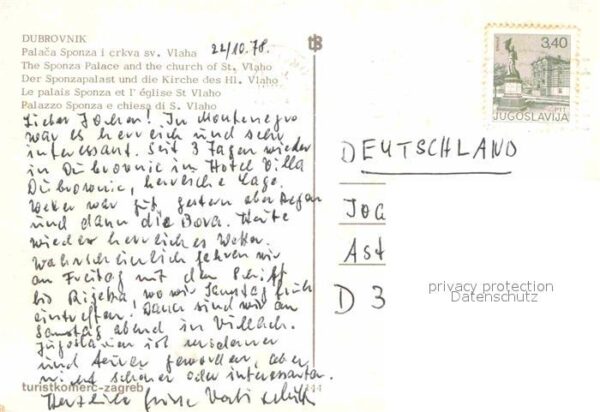 DUBROVNIK
Palača Sponza i crkva sv. Vlaha 22/10.78.
The Sponza Palace and the church of St. Vlaho
Der Sponzapalast und die Kirche des Hl. Vlaho
Le palais Sponza et l' église St Vlaho
Palazzo Sponza e chiesa di S. Vlaho
3,40
JUGOSLAVIJA
Lieber Jochen! In Montenegro
war es herrlich und sehr
interessant. Seit 3 Tagen wieder
in Dubrovnic im Hotel Villa
Dubrovnic, herrliche Lage.
Wetter war gut, gestern aber Regen
und dann die Bora. Heute
wieder herrliches Wetter.
Wahrscheinlich fahren wir
am Freitag mit dem Schiff
bis Rijeka, wo wir Samstag früh
eintreffen. Dann sind wir am
Samstag abend in Villach.
Jugoslavien ist moderner
und teurer geworden, aber
nicht schöner oder interessanter.
Herzliche Grüsse Vati
DEUTSCHLAND
Joa
Ast
D 3
privacy protection
Datenschutz
turistkomerc-zagreb